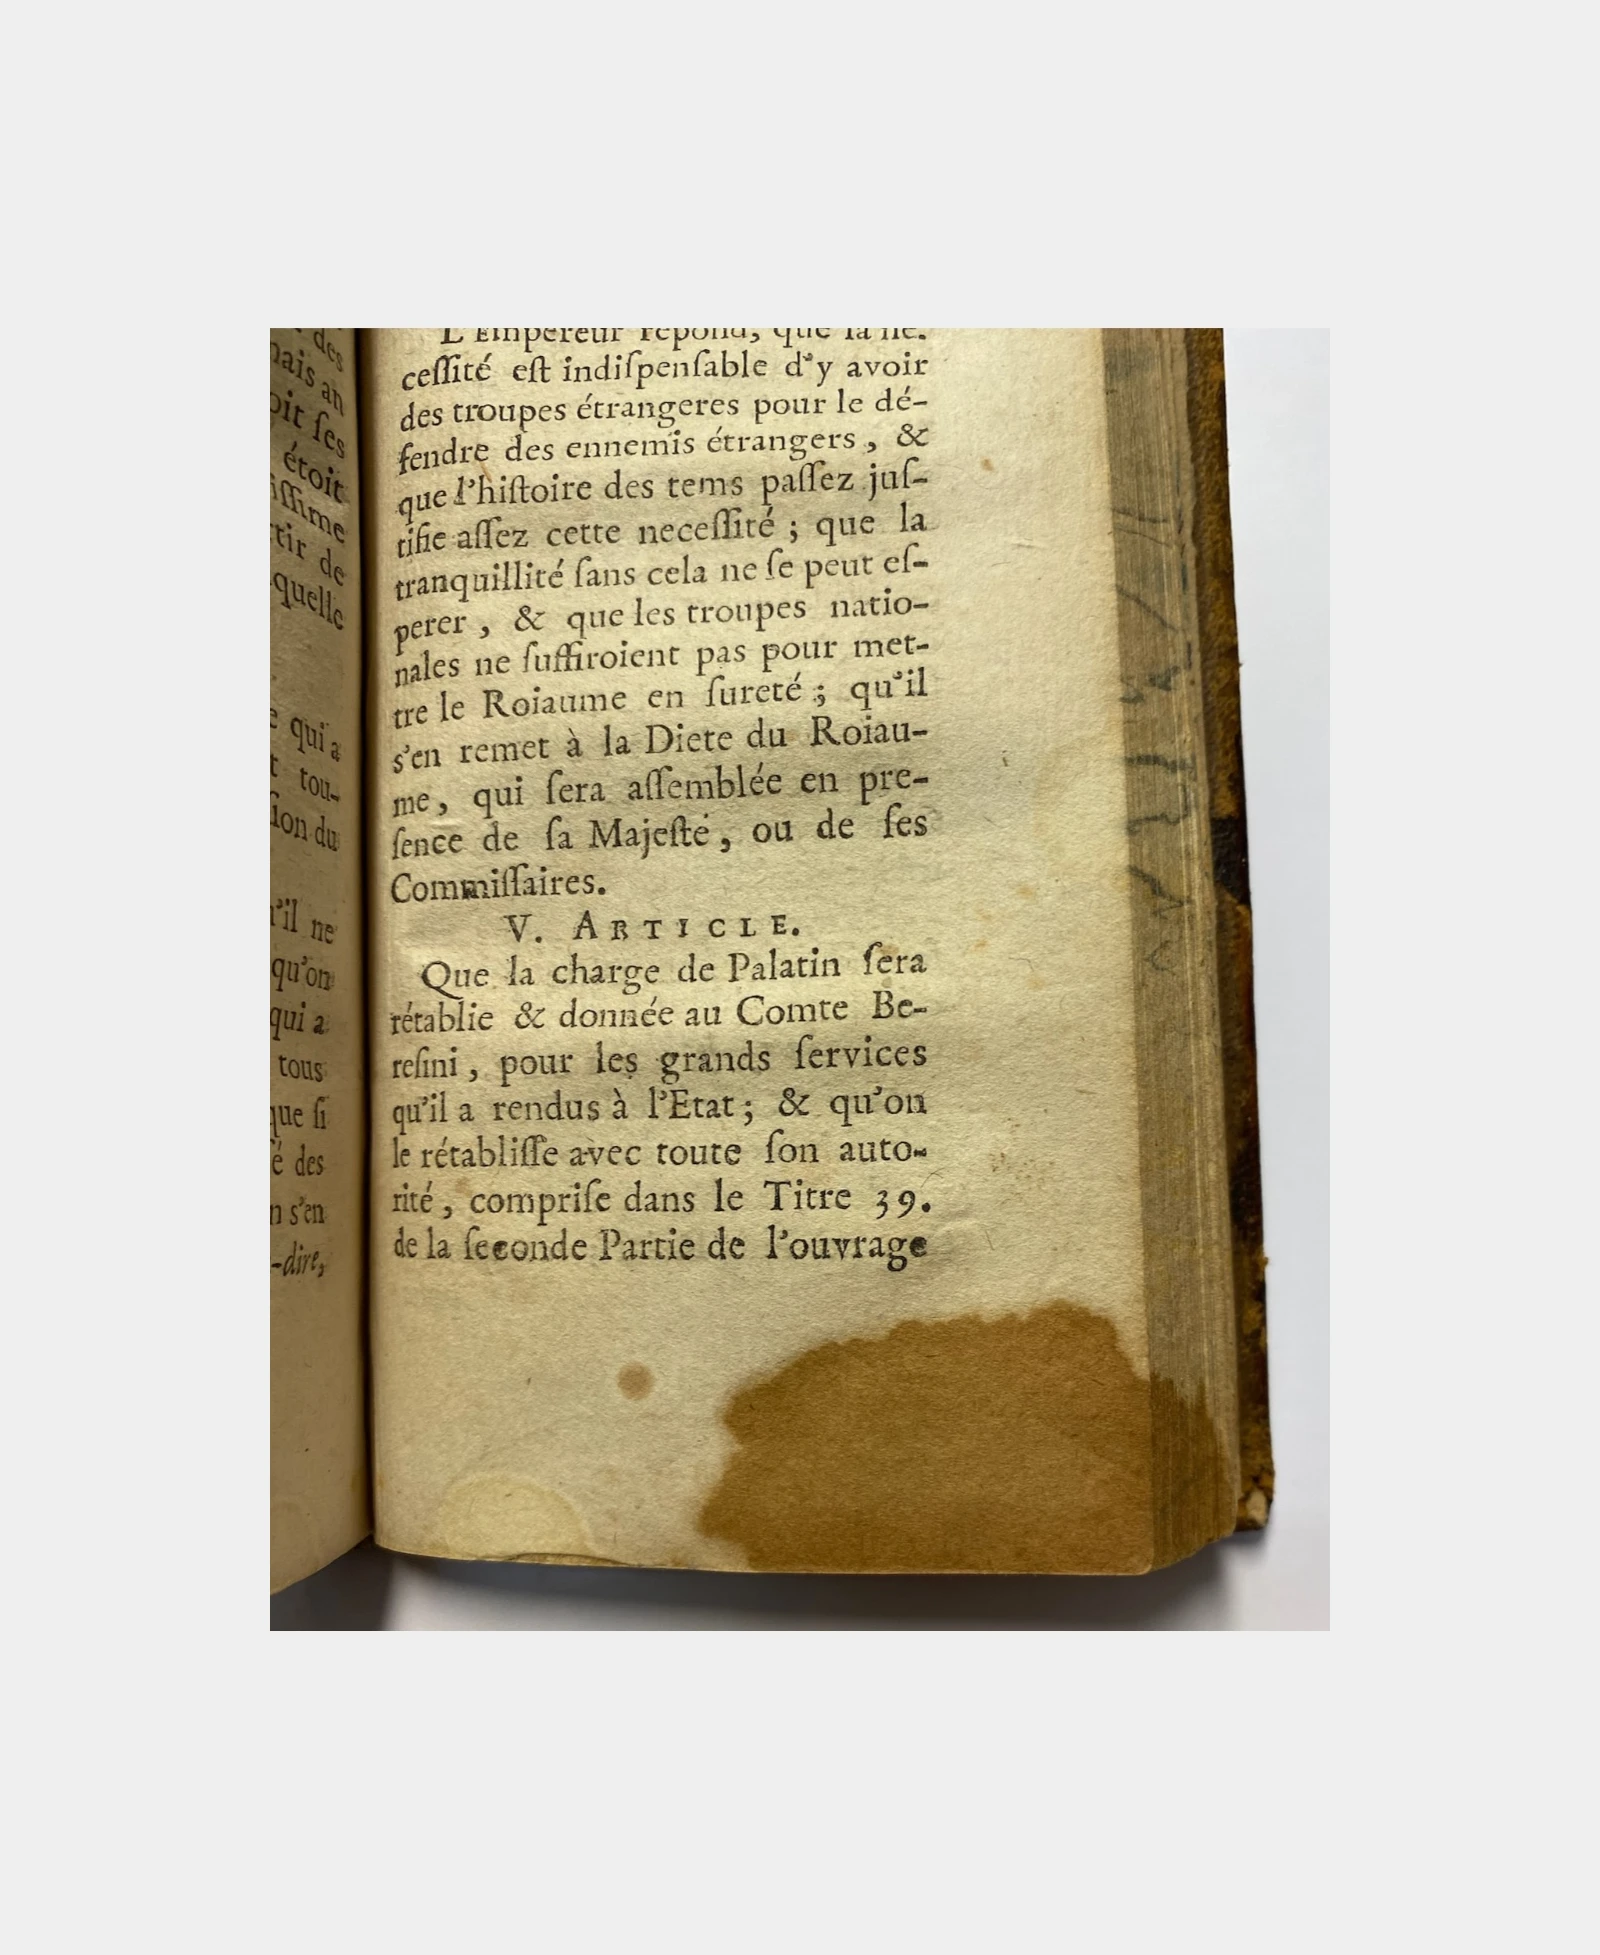 des
mais an
oit ſes
étoit
iſſime
tir de
quelle
qui a
tou-
ſion du
'il ne
qu'on
qui a
tous
que ſi
é des
n s'en
-dire,
L'Empereur répond, que la ne.
ceſſité eſt indiſpenſable d'y avoir
des troupes étrangeres pour le dé-
fendre des ennemis étrangers, &
que l'hiſtoire des tems paſſez juſ-
tifie aſſez cette neceſſité ; que la
tranquillité ſans cela ne ſe peut eſ-
perer, & que les troupes natio-
nales ne ſuffiroient pas pour met-
tre le Roiaume en ſureté ; qu'il
s'en remet à la Diete du Roiau-
me, qui ſera aſſemblée en pre-
ſence de ſa Majeſté, ou de ſes
Commiſſaires.
V. ARTICLE.
Que la charge de Palatin ſera
rétablie & donnée au Comte Be-
reſini, pour les grands ſervices
qu'il a rendus à l'Etat ; & qu'on
le rétabliſſe avec toute ſon auto-
rité, compriſe dans le Titre 39.
de la ſeconde Partie de l'ouvrage